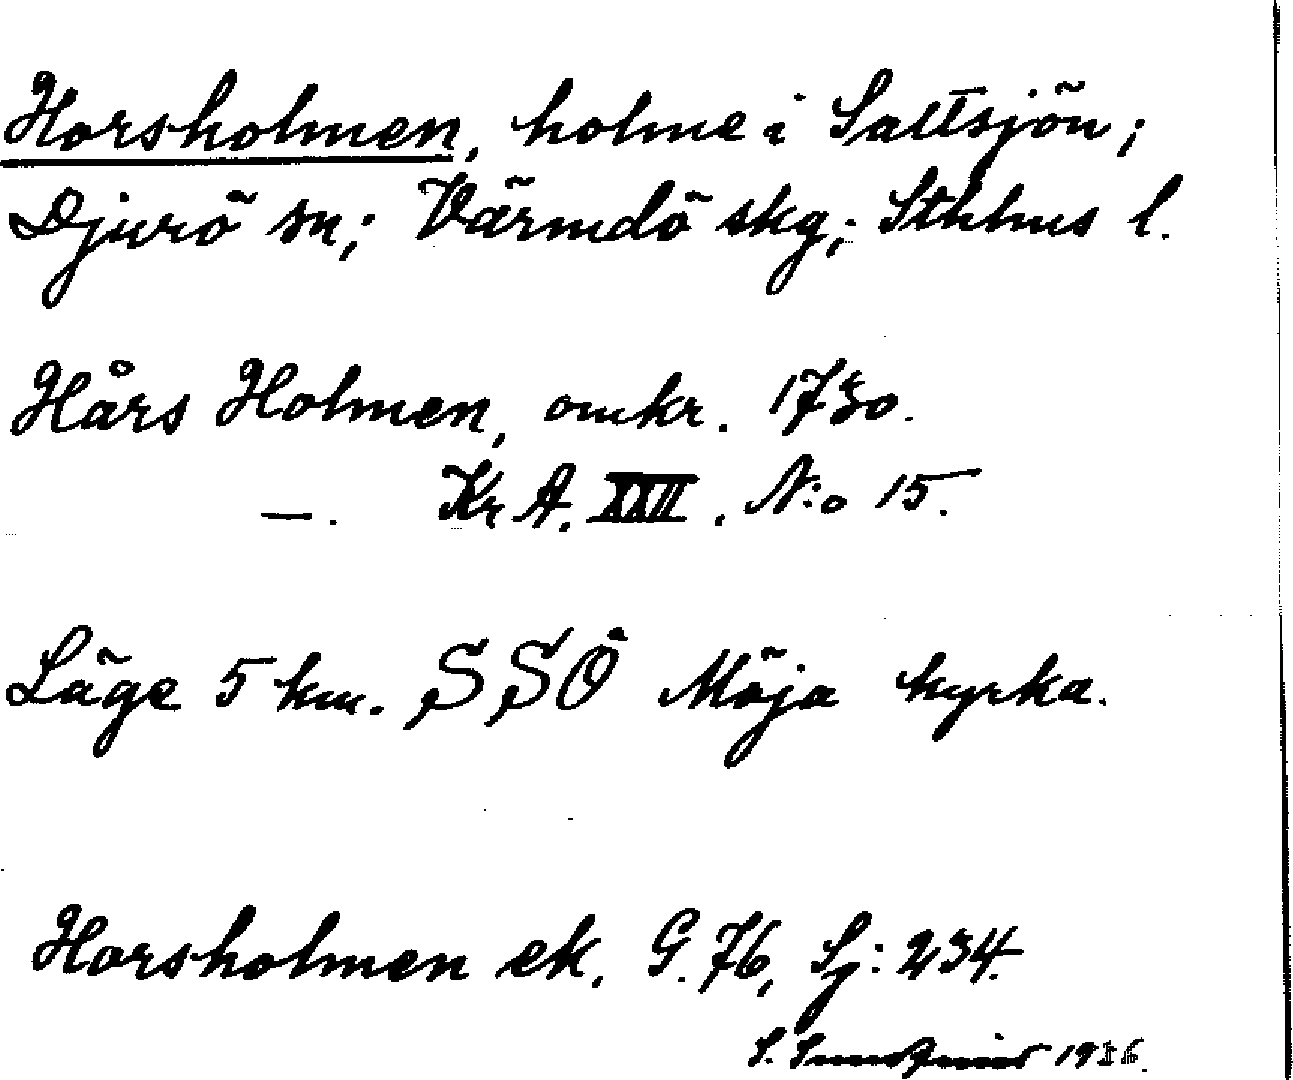 Horsholmen, holme i Saltsjön;
Djurö sn; Värmdö skg; Sthlms l.
Hårs Holmen, omkr. 1730.
—. Kr A. XXII. N:o 15.
Läge 5 km. SSÖ Möja kyrka.
Horsholmen ek. G. 76, Sj: 234.
S. 1936.